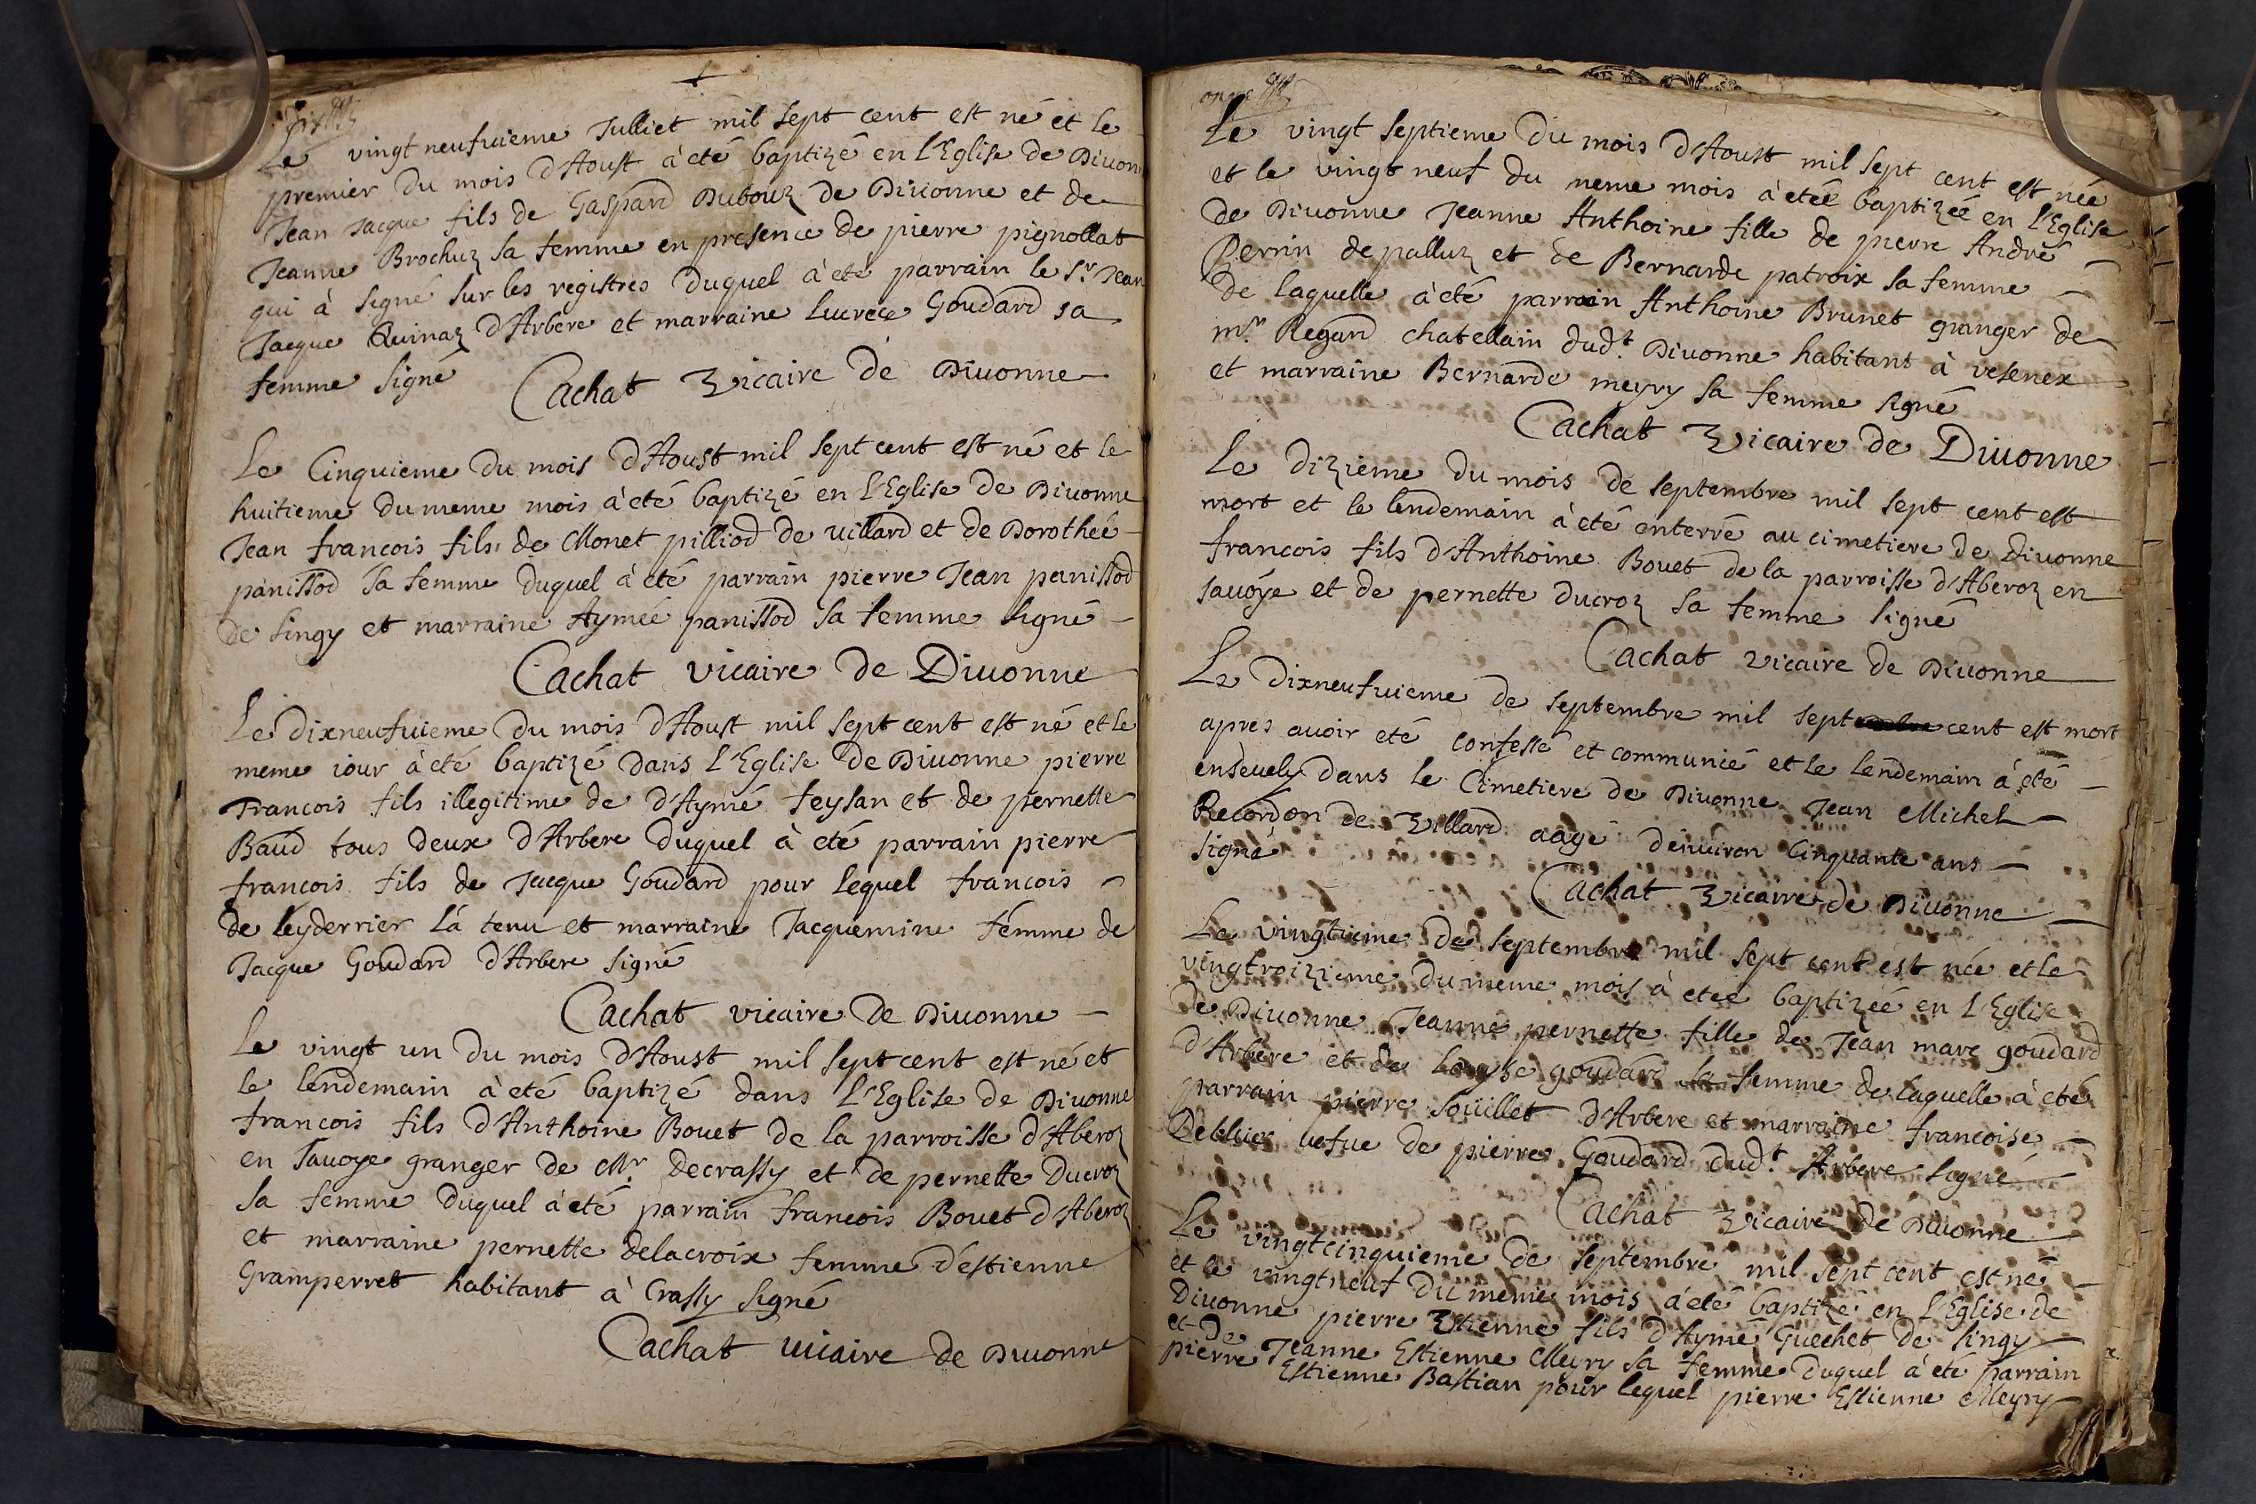 Le vingt neufuieme Julliet mil sept cent est né et le
premier du mois d'Aoust à eté baptizé en l'Eglise de Diuon
Jean Jacque fils de Gaspard Dubouz de Diuonne et de
Jeanne Brochuz sa femme en presence de pierre pignollat
qui à signé sur les registres duquel à eté parrain le Sr Jean
Jacque Quinaz d'Arbere et marraine Lucrece Goudard sa
femme signé
Cachat Vicaire de Diuonne
Le Cinquieme du mois d'Aoust mil sept cent est né et le
huitieme du meme mois à eté baptizé en l'Eglise de Diuonne
Jean francois fils de Monet pilliod de uillard et de Dorotheé
panissod sa femme duquel à eté parrain pierre Jean panissod
de singy et marraine Aymeé panissod sa femme signé
Cachat vicaire de Diuonne
Le dixneufuieme du mois d'Aoust mil sept cent est né et le
meme iour à eté baptizé dans l'Eglise de Diuonne pierre
Francois fils illegitime de d'Aymé feysan et de pernette
Baud tous deux d'Arbere duquel à eté parrain pierre
francois fils de Jacque Goudard pour lequel francois
de leyderrier l'à tenu et marraine Jacquemine femme de
Jacque Goudard d'Arbere signé
Cachat vicaire de Diuonne
Le vingt un du mois d'Aoust mil sept cent est né et
le lendemain à eté baptizé dans l'Eglise de Diuonne
francois fils d'Anthoine Bouet de la parroisse d'Aberoz
en Sauoye granger de Mr. Decrassy et de pernette Ducroz
sa femme duquel à eté parrain francois Bouet d'Aberoz
et marraine pernette delacroix femme d'estienne
Gramperret habitant à Crassy signé
Cachat uicaire de Diuonne
Le vingt septieme du mois d'Aoust mil sept cent est née
et le vingt neuf du meme mois à etéé baptizéé en l'Eglise
de Diuonne Jeanne Anthoine fille de pierre André
Perrin de palluz et de Bernarde patroix sa femme
de laquelle à eté parrain Anthoine Brunet granger de
mr. Regard chatellain dudt. Diuonne habitant à vesenex
et marraine Bernarde meyry sa femme signé
Cachat Vicaire de Diuonne
Le dizieme du mois de septembre mil sept cent est
mort et le lendemain à eté enterré au cimetiere de Diuonne
francois fils d'Anthoine Bouet de la parroisse d'Aberoz en
sauoye et de pernette ducroz sa femme signé
Cachat vicaire de Diuonne
Le Dixneufuieme de septembre mil sept cent est mort
apres auoir eté confessé et communié et le lendemain à eté
enseuely dans le Cimetiere de Diuonne Jean Michel
Recordon de Villard aagé d'enuiron Cinquante ans
signé
Cachat Vicaire de Diuonne
Le vingtieme de septembre mil sept cent est née et le
vingtroizieme du meme mois à eteé baptizéé en l'Eglise
de Diuonne Jeanne pernette fille de Jean marc goudard
d'Arbere et de goudard sa femme de laquelle à eté
parrain pierre Soüillet d'Arbere et marraine francoise
uefue de pierre Goudard dudt Arbere signé
Cachat Vicaire de Diuonne
Le vingtcinquieme de septembre mil sept cent est né
et le vingtneuf du meme mois à eté baptizé en l'Eglise de
Diuonne pierre Etienne fils d'Aymé Guechet de singy
et de Jeanne Estienne Meyry sa femme duquel à eté parrain
pierre Estienne Bastian pour lequel pierre Estienne Meyry